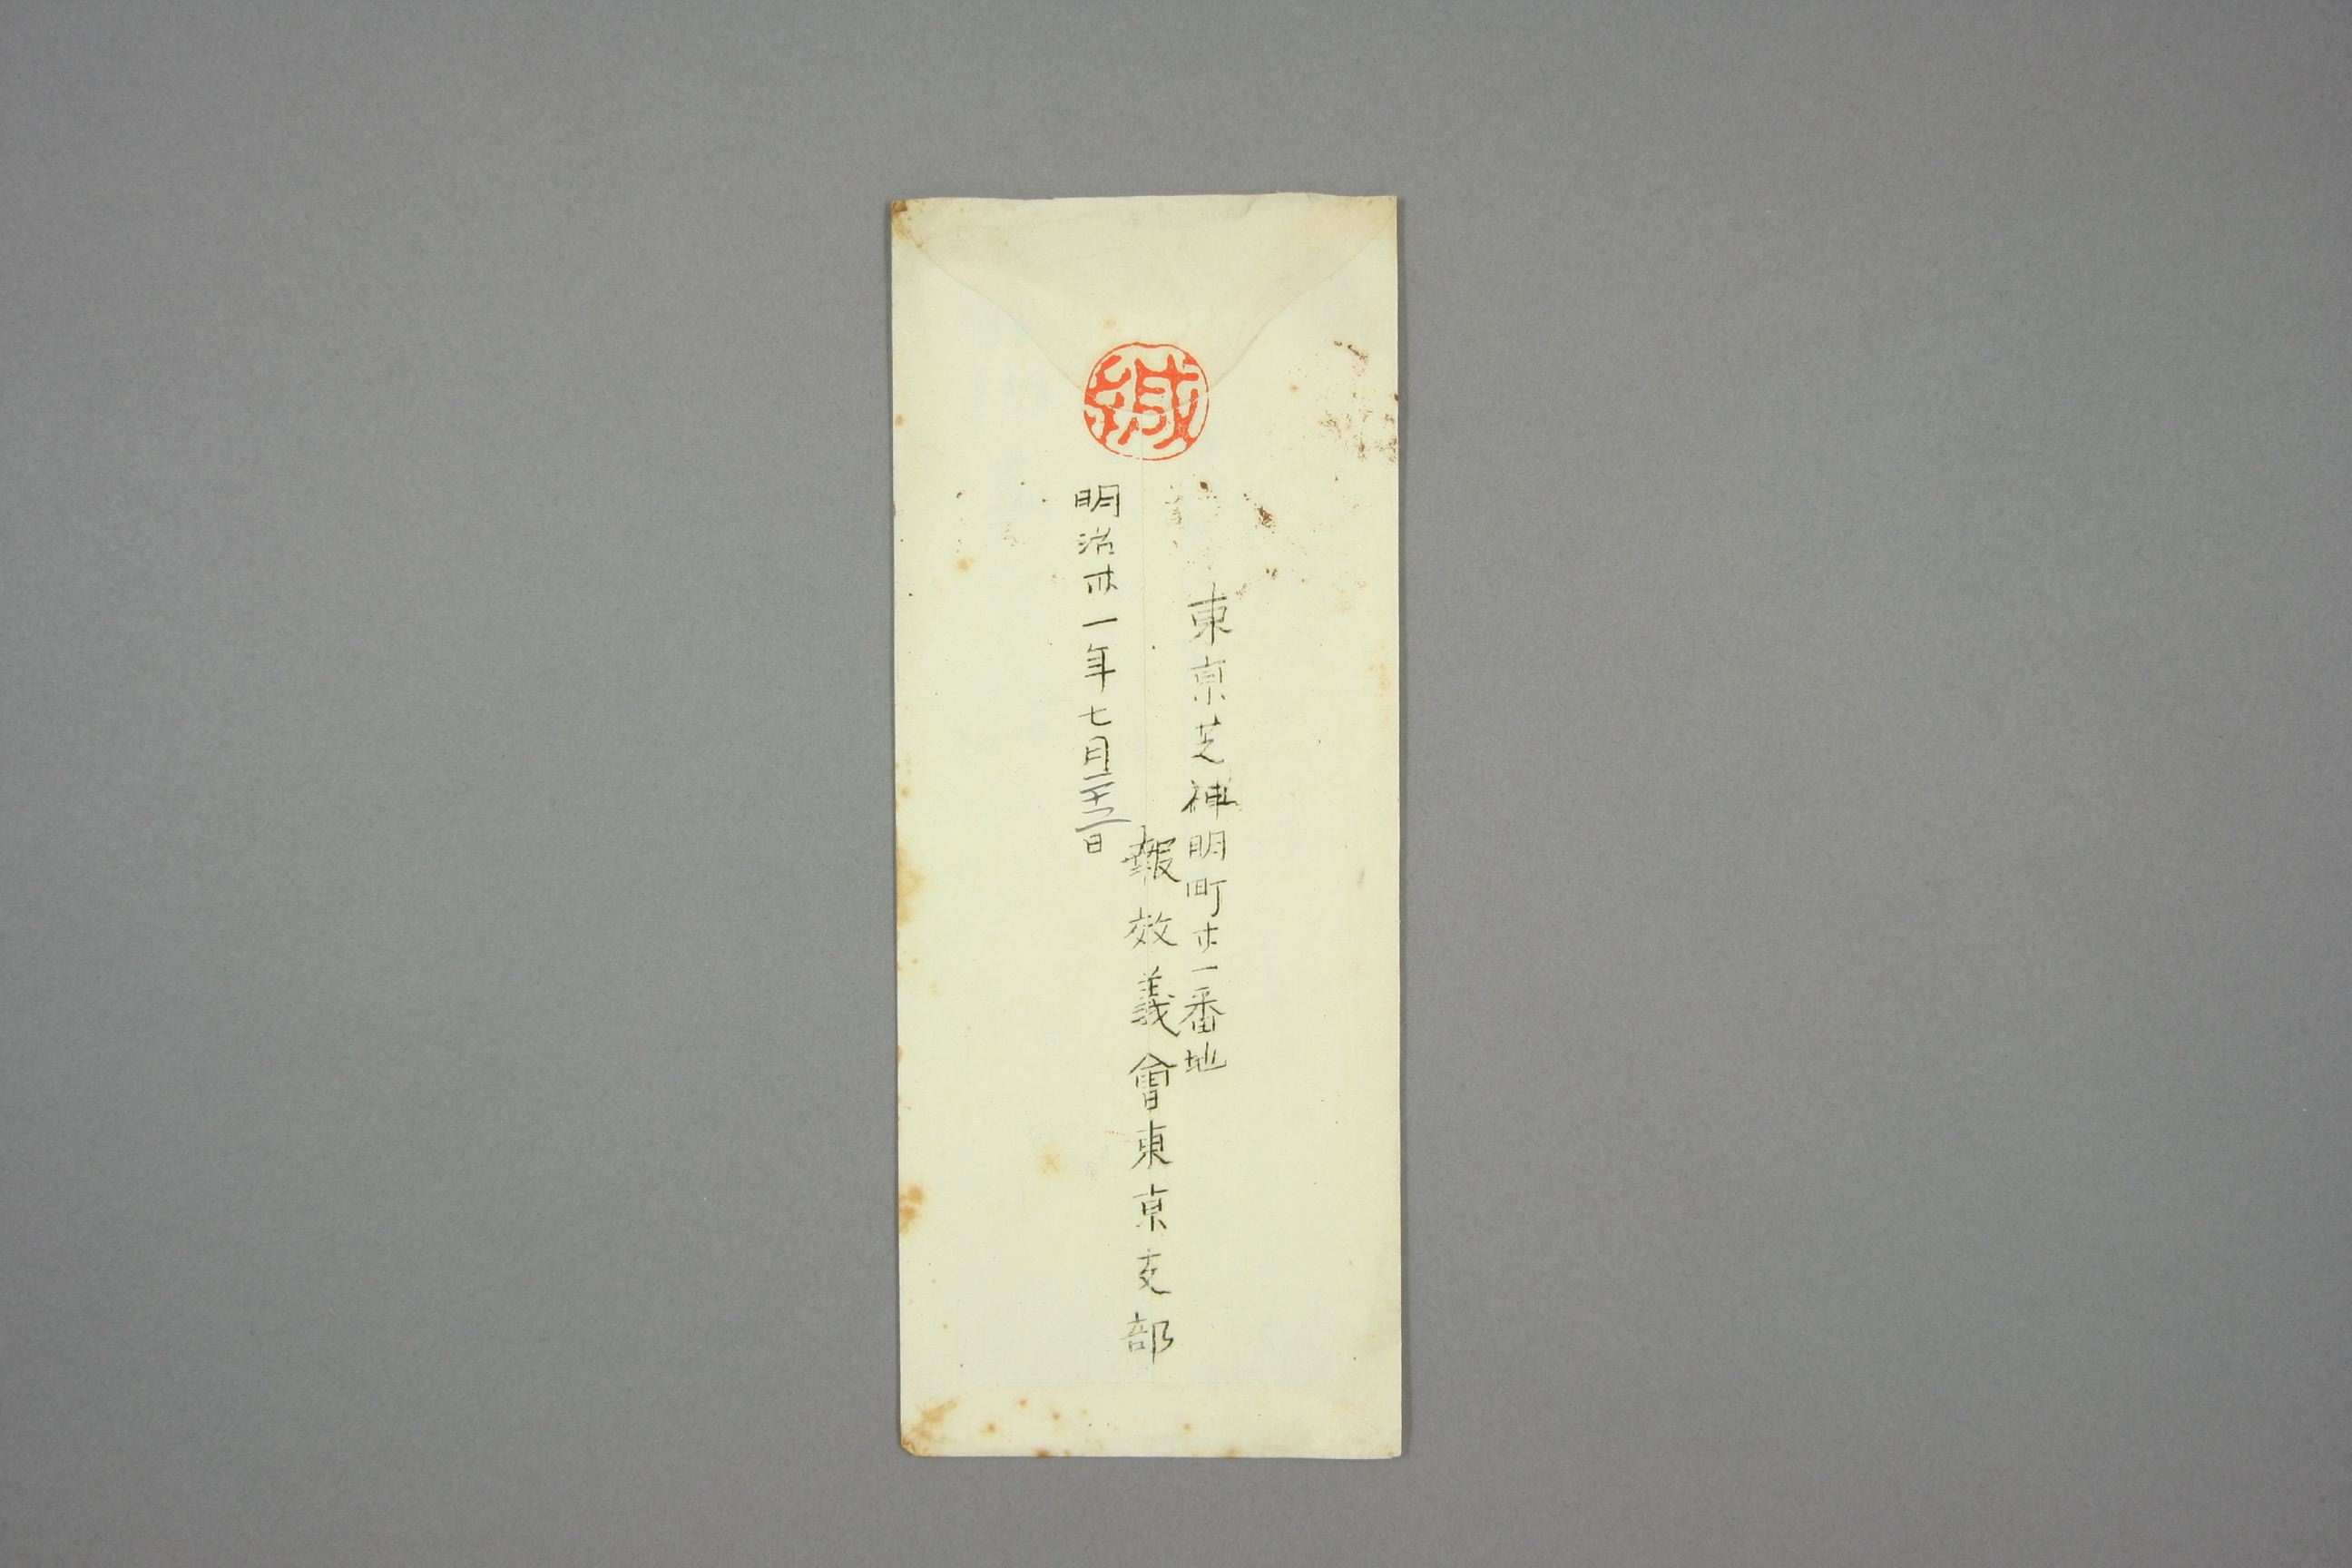 緘
東京芝神明町廿一番地
報效義會東京支部
明治卅一年七月二十三日